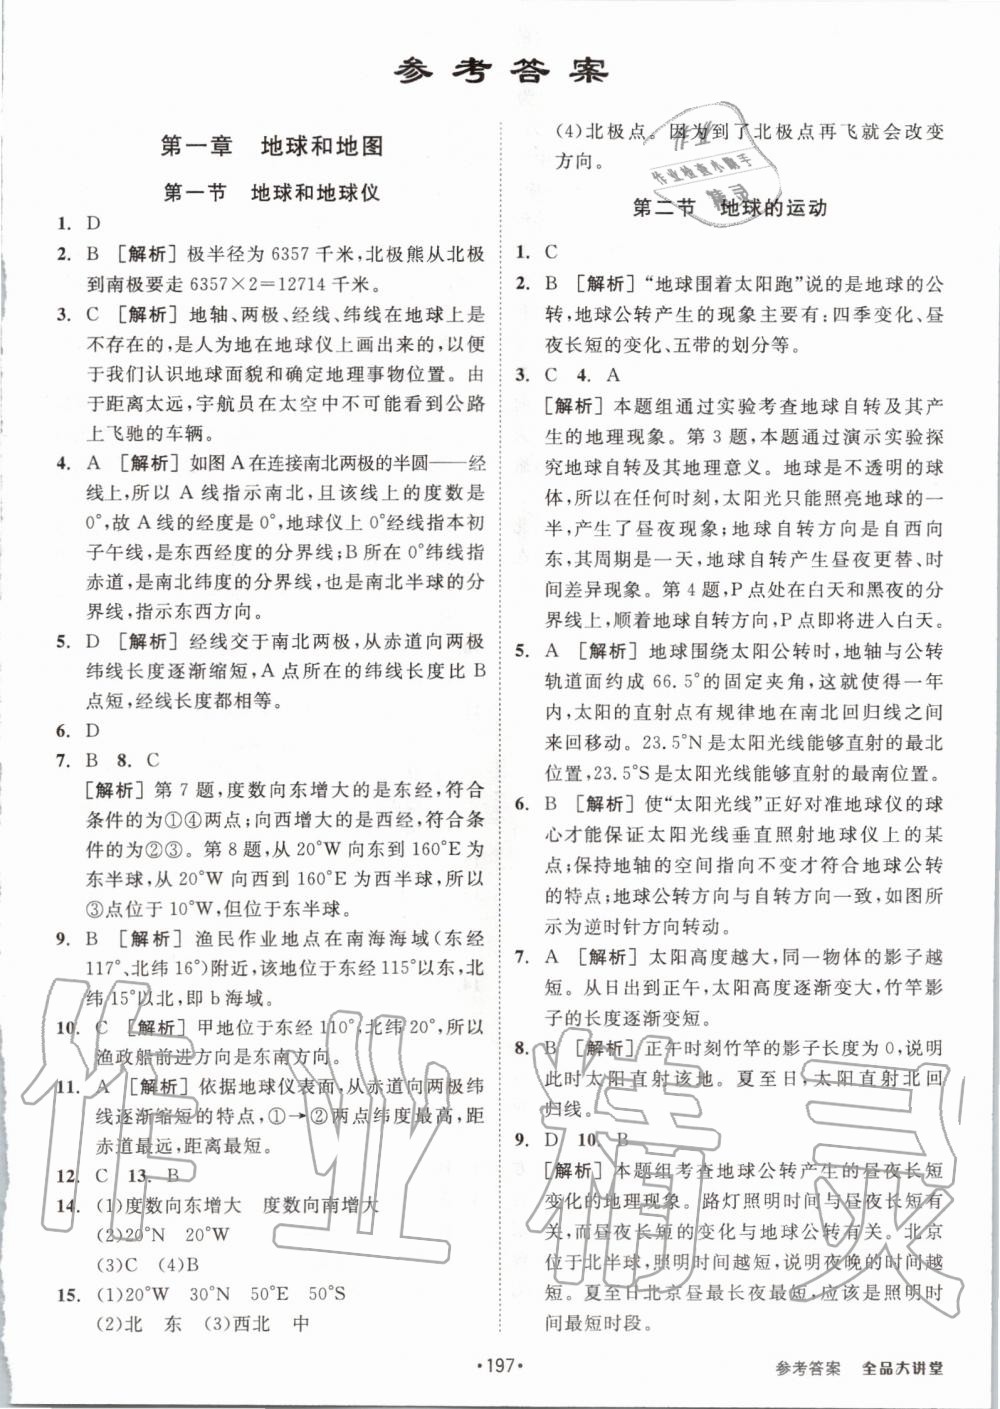 参考答案
第一章 地球和地图
第一节 地球和地球仪
1. D
2. B [解析] 极半径为6357千米,北极熊从北极到南极要走6357×2=12714千米。
3. C [解析] 地轴、两极、经线、纬线在地球上是
不存在的,是人为地在地球仪上画出来的,以便
于我们认识地球面貌和确定地理事物位置。由
于距离太远,宇航员在太空中不可能看到公路
上飞驰的车辆。
4. A [解析] 如图A在连接南北两极的半圆——经
线上,所以A线指示南北,且该线上的度数是
0°,故A线的经度是0°,地球仪上0°经线指本初
子午线,是东西经度的分界线;B所在的纬线指
赤道,是南北纬度的分界线,也是南北半球的分
界线,指示东西方向。
5. D [解析] 经线交于南北两极,从赤道向两极
纬线长度逐渐缩短,A点所在的纬线长度比B
点短,经线长度都相等。
6. D
7. B 8. C
[解析] 第7题,度数向东增大的是东经,符合
条件的为①④两点;向西增大的是西经,符合条
件的为②③。第8题,从20°W向东到160°E为
东半球,从20°W向西到160°E为西半球,所以
③点位于10°W,但位于东半球。
9. B [解析] 渔民作业地点在南海海域(东经
117°、北纬16°)附近,该地位于东经115°以东,北
纬15°以北,即b海域。
10. C [解析] 甲地位于东经110°,北纬20°,所以
渔政船前进方向是东南方向。
11. A [解析] 依据地球仪表面,从赤道向两极纬
线逐渐缩短的特点,①→②两点纬度最高,距
赤道最远,距离最短。
12. C 13. B
14. (1)度数向东增大 度数向南增大
(2)20°N 20°W
(3)C (4)B
15. (1)20°W 30°N 50°S 50°S
(2)北 东 (3)西北 中
(4)北极点。因为到了北极点再飞就会改变
方向。
第二节 地球的运动
1. C
2. B [解析] “地球围着太阳跑”说的是地球的公
转,地球公转产生的现象主要有:四季变化、昼
夜长短的变化、五带的划分等。
3. C 4. A
[解析] 本题组通过实验考查地球自转及其产
生的地理现象。第3题,本题通过演示实验探
究地球自转及其地理意义。地球是不透明的球
体,所以在任何时刻,太阳光只能照亮地球的一
半,产生了昼夜现象;地球自转方向是自西向
东,其周期是一天,地球自转产生昼夜更替、时
间差异现象。第4题,P点处在白天和黑夜的分
界线上,顺着地球自转方向,P点即将进入白天。
5. A [解析] 地球围绕太阳公转时,地轴与公转
轨道面约成66.5°的固定夹角,这就使得一年
内,太阳的直射点有规律地在南北回归线之间
来回移动。23.5°N是太阳光线能够直射的最北
位置,23.5°S是太阳光线能够直射的最南位置。
6. B [解析] 使“太阳光线”正好对准地球仪的球
心才能保证太阳光线垂直照射地球仪上的某
点;保持地轴的空间指向不变才符合地球公转
的特点;地球公转方向与自转方向一致,如图所
示为逆时针方向转动。
7. A [解析] 太阳高度越大,同一物体的影子越
短。从日出到正午,太阳高度逐渐变大,竹竿影
子的长度逐渐变短。
8. B [解析] 正午时刻竹竿的影子长度为0,说明
此时太阳直射该地。夏至日,太阳直射北回
归线。
9. D 10. B
[解析] 本题组考查地球公转产生的昼夜长短
变化的地理现象。路灯照明时间与昼夜长短有
关,而昼夜长短的变化与地球公转有关。北京
位于北半球,照明时间越短,说明夜晚的时间越
短。夏至日北京昼最长夜最短,应该是照明时
间最短时段。
·197·
参考答案 全品大讲堂
作业
作业检查小助手
精灵
作业精灵